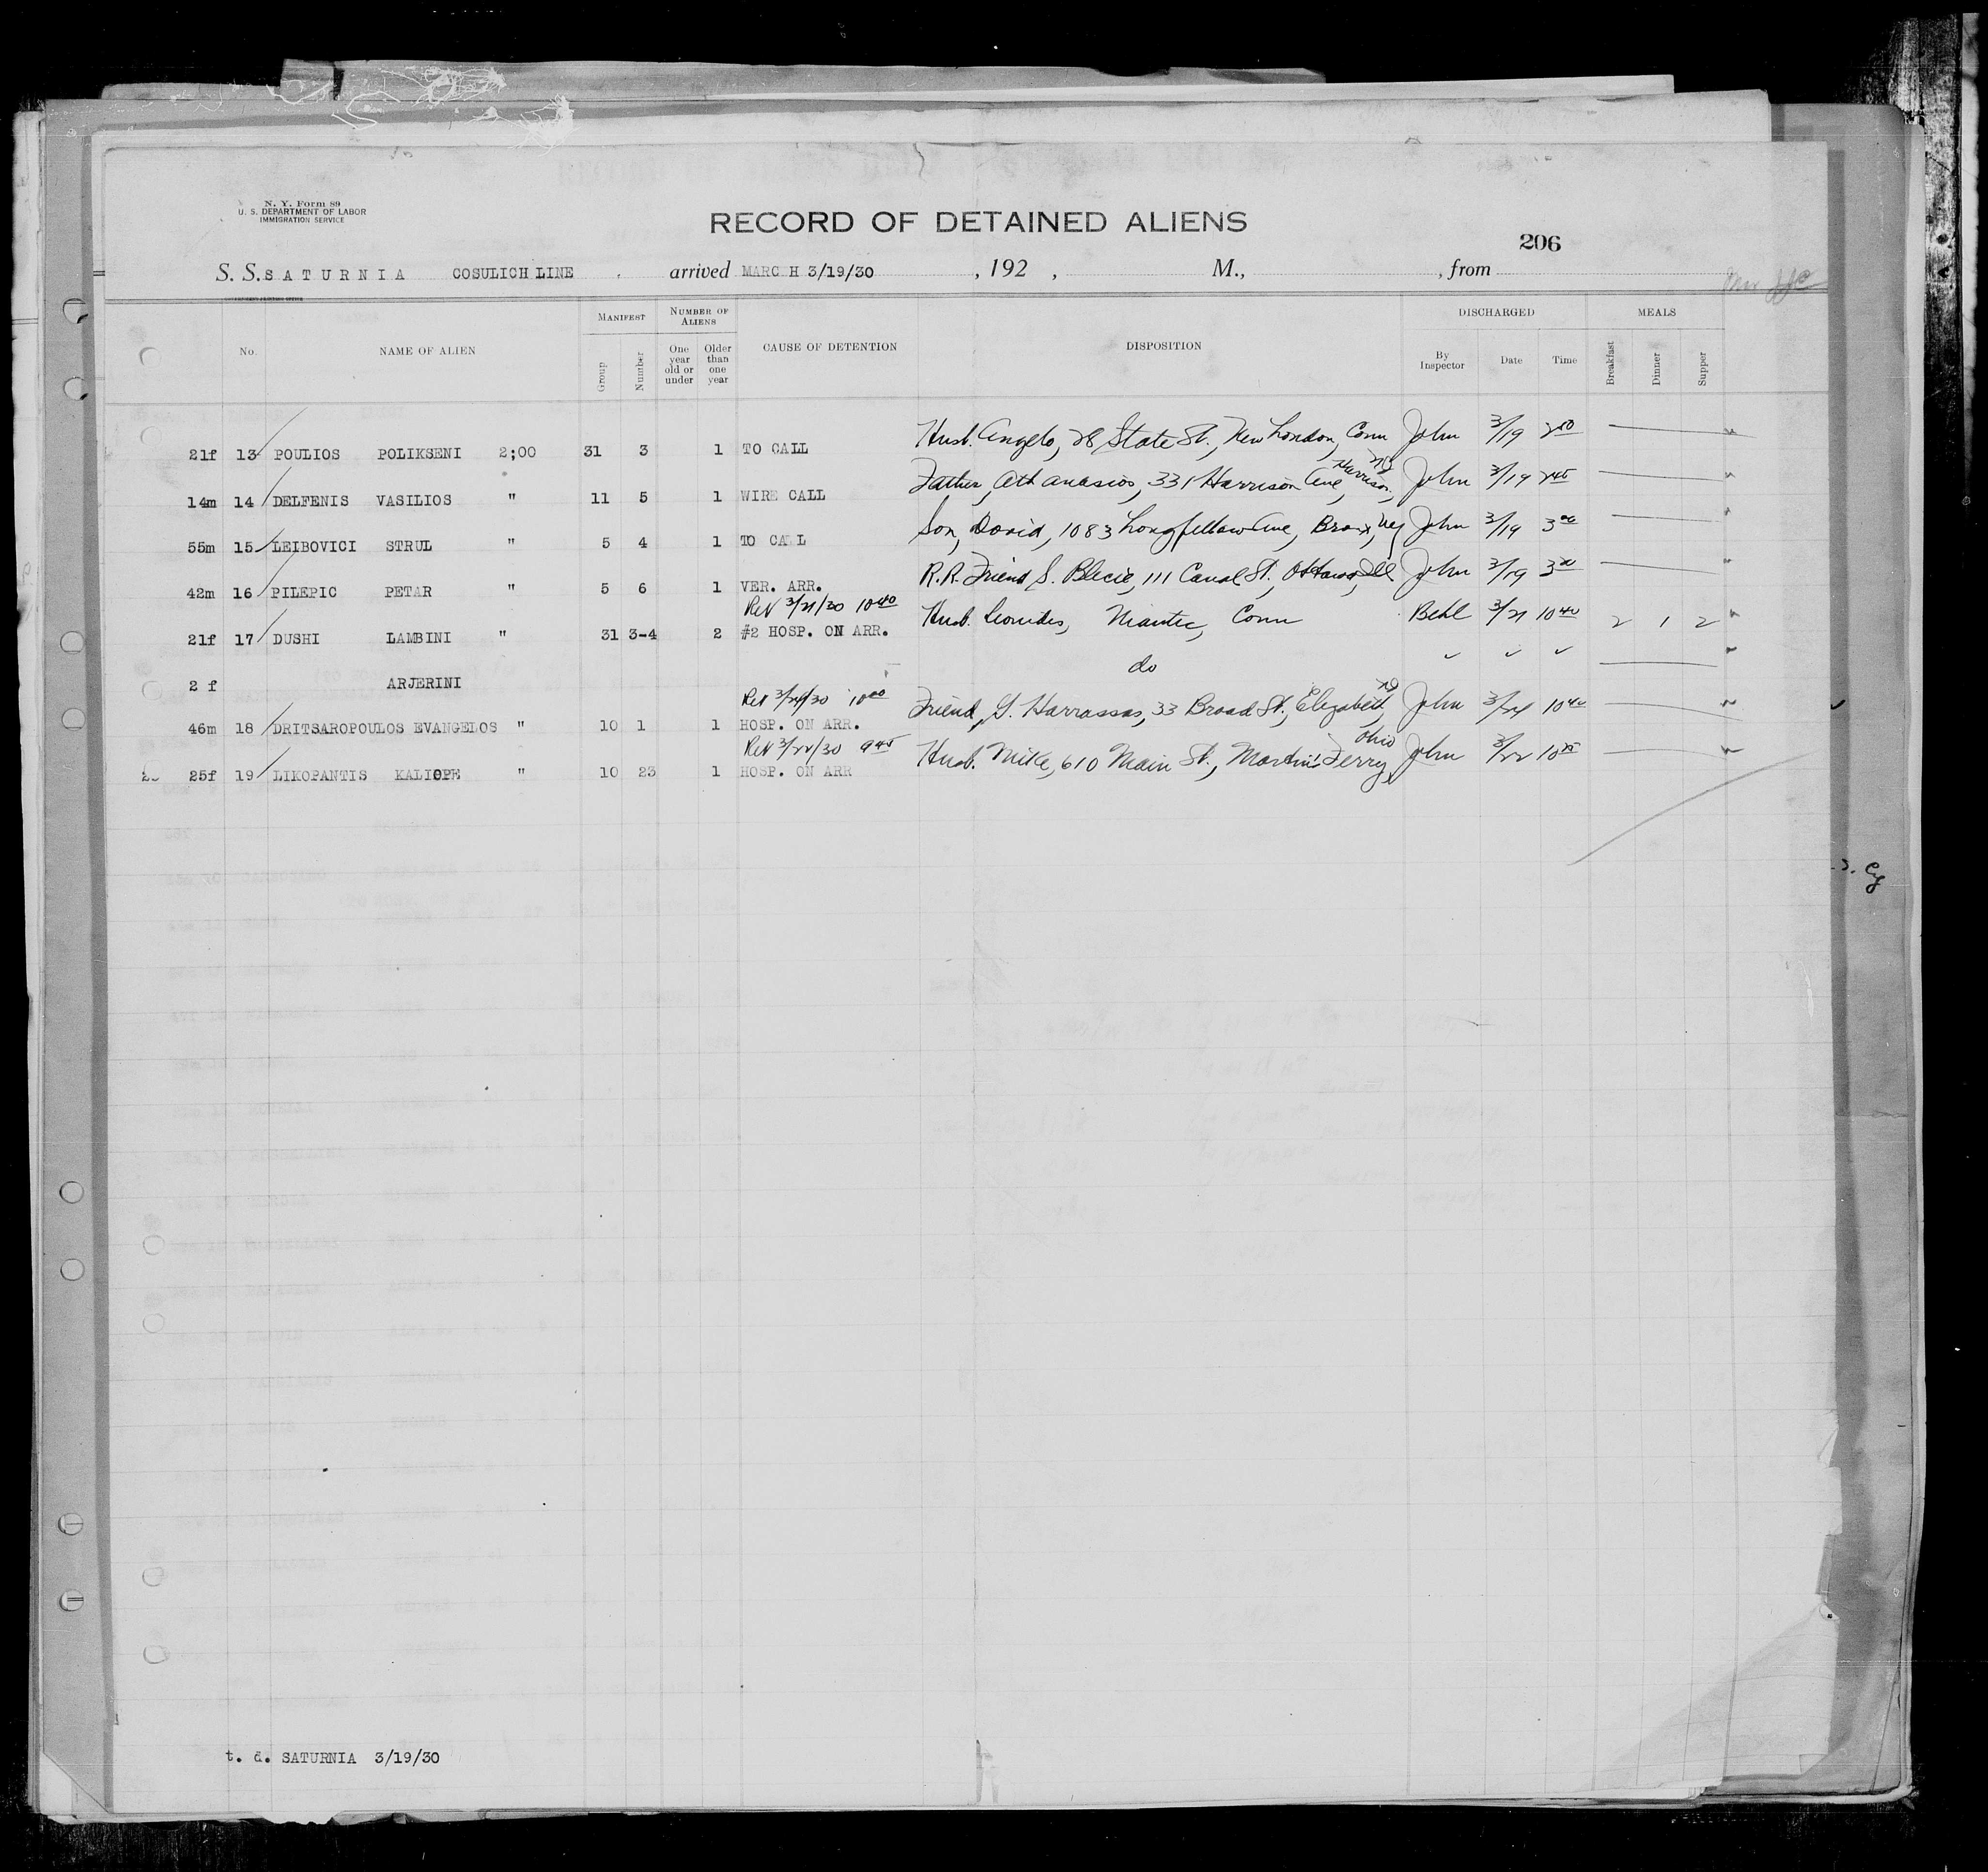 N. Y. Form 89
U. S. DEPARTMENT OF LABOR
IMMIGRATION SERVICE
RECORD OF DETAINED ALIENS
206
S. S. SATURNIA COSULICH LINE arrived MARCH 3/19/30, 192 , M., , from
No. NAME OF ALIEN MANIFEST Group Number NUMBER OF ALIENS One year old or under Older than one year CAUSE OF DETENTION DISPOSITION DISCHARGED By Inspector Date Time MEALS Breakfast Dinner Supper
21f 13 POULIOS POLIKSENI 2;00 31 3 1 TO CALL Husb. Angelo, 28 State St., New London, Conn John 3/19 2 50
14m 14 DELFENIS VASILIOS " 11 5 1 WIRE CALL Father, Athanasios, 331 Harrison Ave, Harrison, NJ John 3/19 2 45
55m 15 LEIBOVICI STRUL " 5 4 1 TO CALL Son, David, 1083 Longfellow Ave, Bronx, NY John 3/19 3 00
42m 16 PILEPIC PETAR " 5 6 1 VER. ARR. R.R. Friend S. Blecie, 111 Canal St., Ottawa, Ill John 3/19 3 20
Rel 3/21/30 10 40
21f 17 DUSHI LAMBINI " 31 3-4 2 #2 HOSP. ON ARR. Husb. Leonides, Niantic, Conn Behl 3/21 10 40 2 1 2
2 f ARJERINI do
Rel 3/24/30 10 00
46m 18 DRITSAROPOULOS EVANGELOS " 10 1 1 HOSP. ON ARR. Friend, G. Harrassas, 33 Broad St., Elizabeth, NJ John 3/24 10 40
Rel 3/22/30 9 45
25f 19 LIKOPANTIS KALIOPE " 10 23 1 HOSP. ON ARR Husb. Mike, 610 Main St., Martin's Ferry, Ohio John 3/22 10 25
t. d. SATURNIA 3/19/30